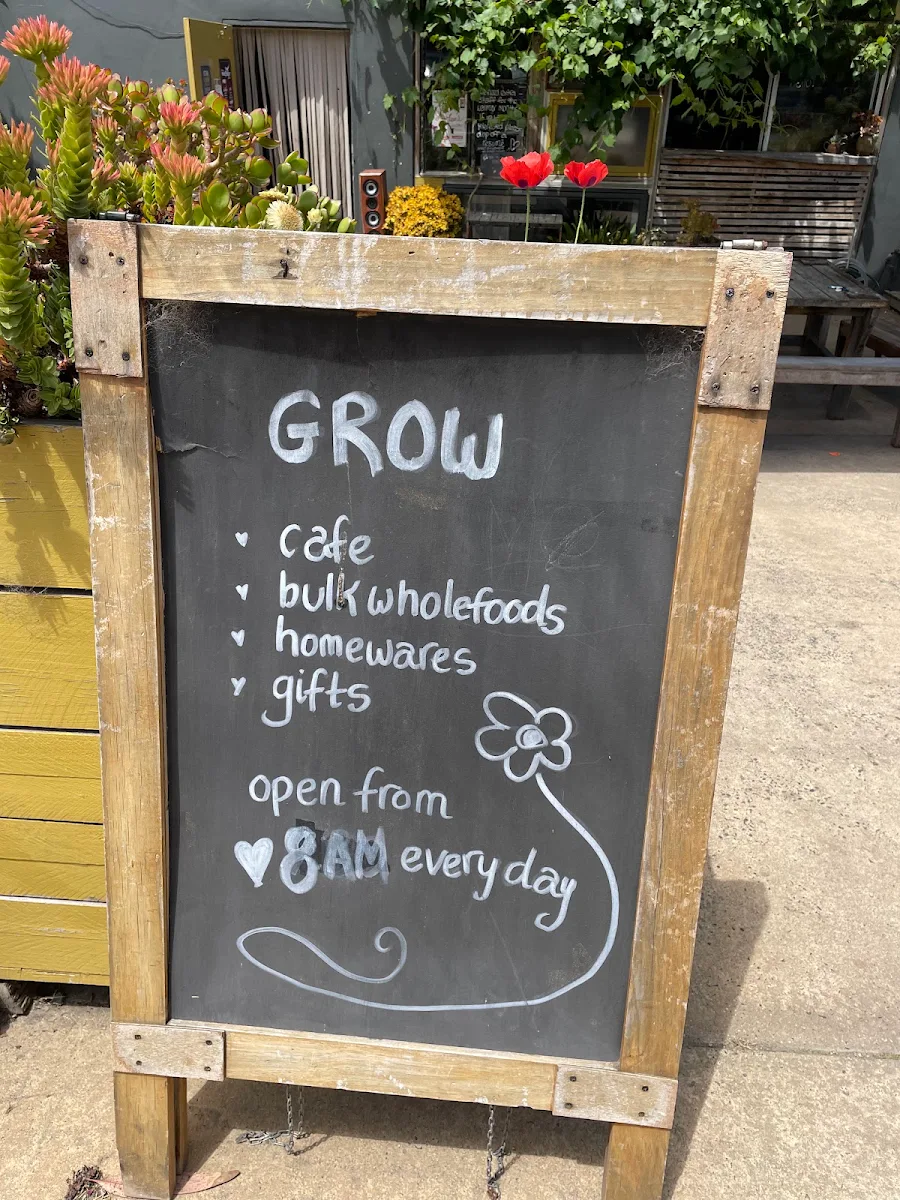 GROW
cafe
bulk wholefoods
homewares
gifts
open from
8AM everyday